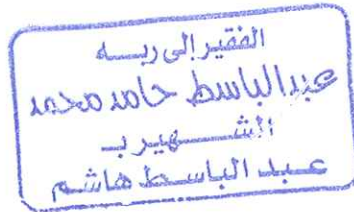 الفقير إلى ربـــه
عبدالباسط حامد محمد
الشـــهير بـ
عـبـد الباسـط هاشـم